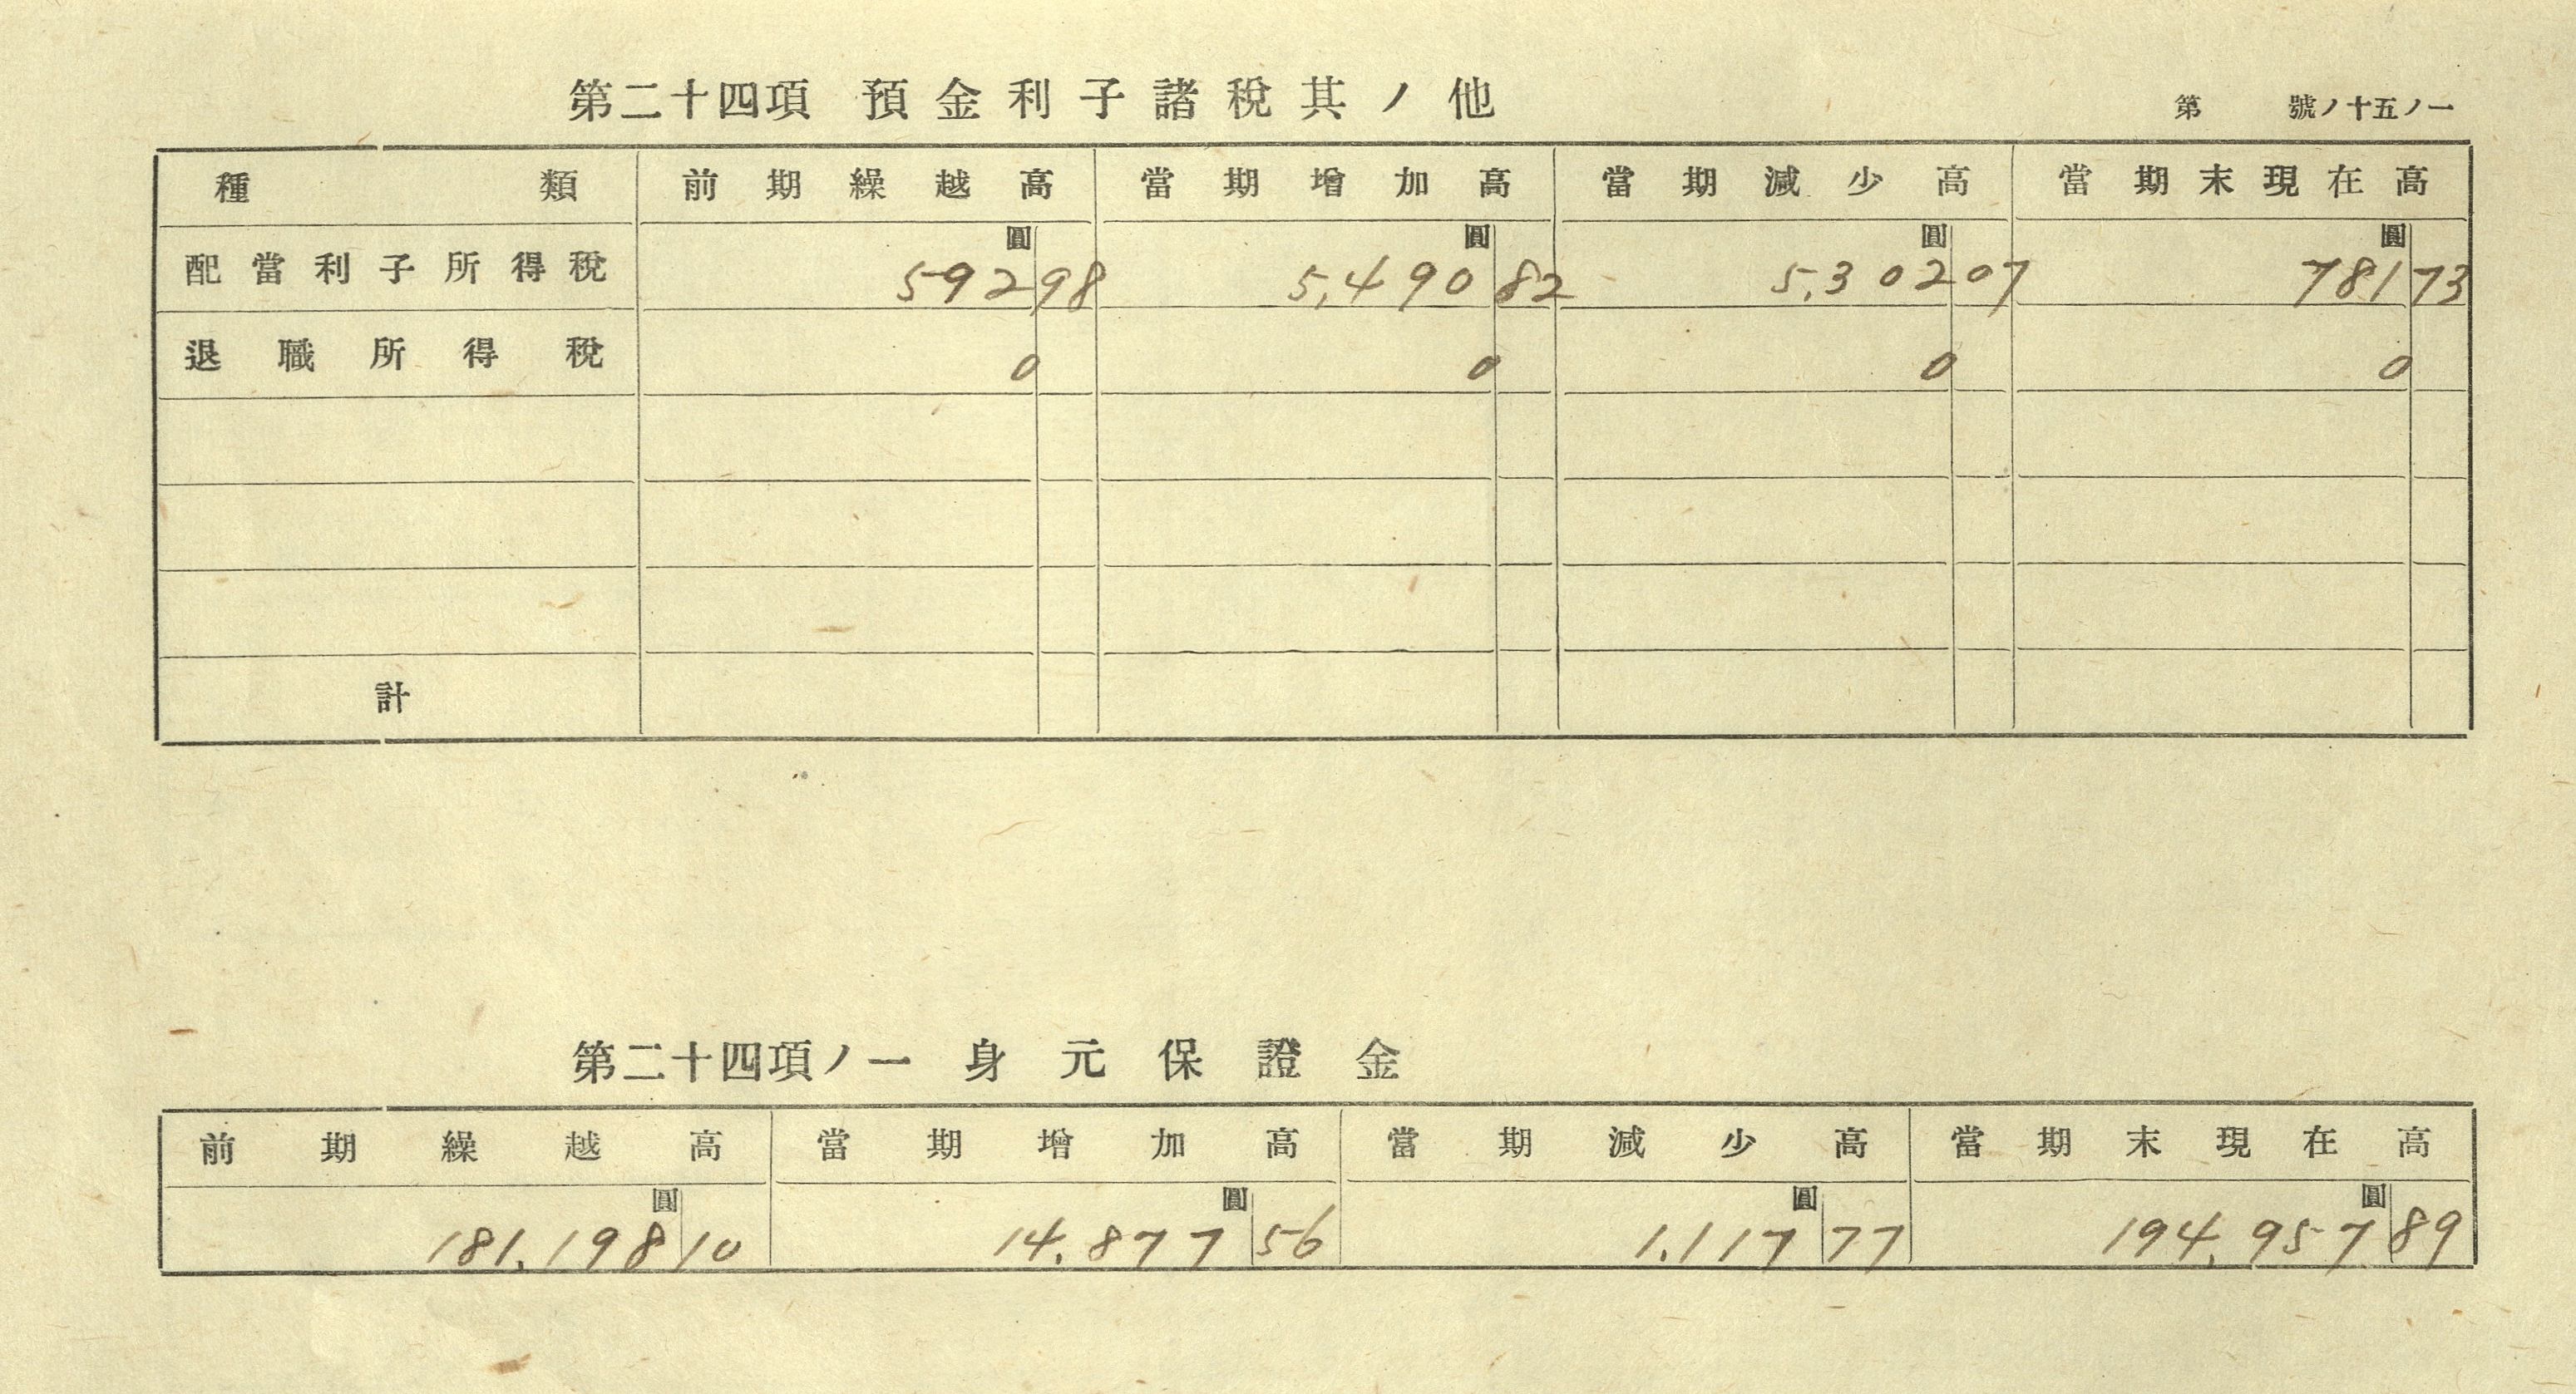 第二十四項 預金利子諸稅其ノ他
第 號ノ十五ノ一
種類 前期繰越高 當期增加高 當期減少高 當期末現在高
圓 圓 圓 圓
配當利子所得稅 592 98 5,490 82 5,302 07 781 73
退職所得稅 0 0 0 0
計
第二十四項ノ一 身元保證金
前期繰越高 當期增加高 當期減少高 當期末現在高
圓 圓 圓 圓
181,198 10 14,877 56 1,117 77 194,957 89